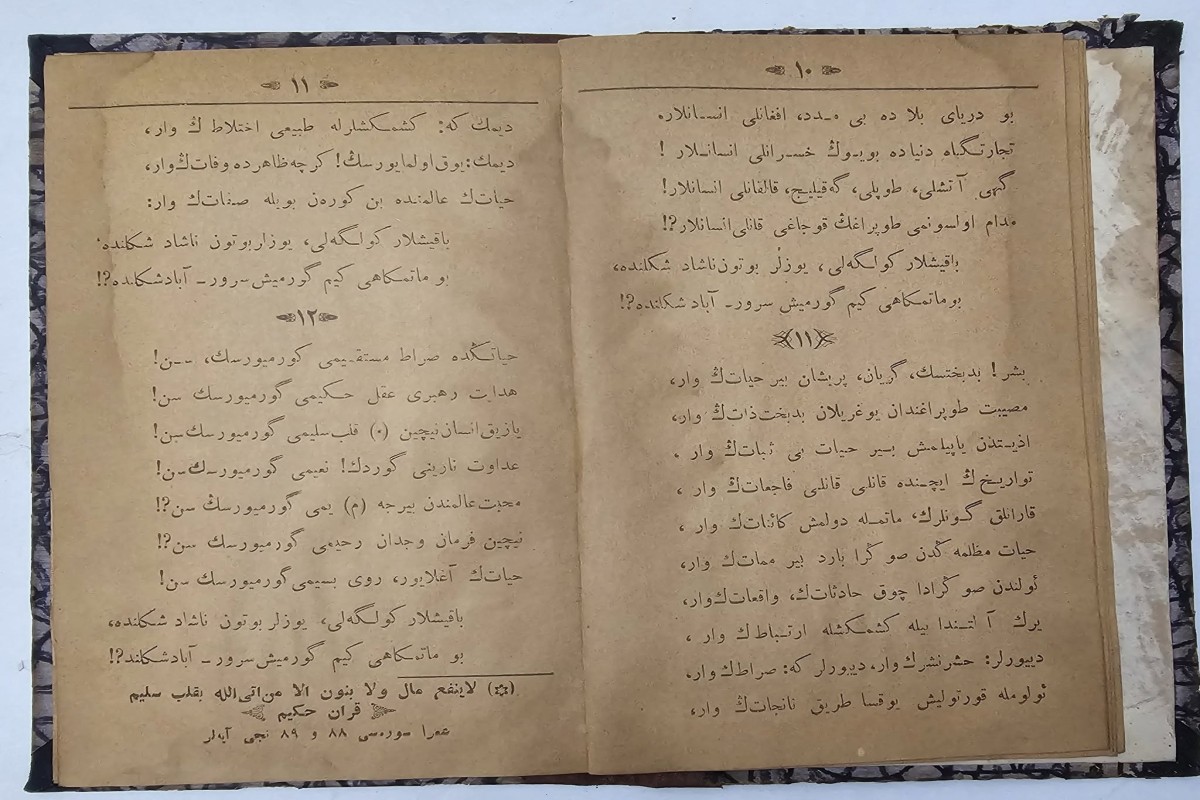 ١٠
بو دریای بلا ده بی مـدد، افغانلی انسـانلار،
تجارتـگـاه دنیاده بویـوڭ خسـرانلی انسانـلار !
گهی آتشلی، طوپلی، گه قیلیج، قالقانلی انسانلار!
مدام اولسونمی طوپراغڭ قوجاغی قانلی انسانلار؟!
باقیشلار کولـگه لی، یوزلر بوتون ناشاد شکلنده،
بو ماتمکاهی کیم گورمیش سرور ـ آباد شکلنده؟!
١١
بشر ! بدبختسك، گریان، پریشان بیر حیات ڭ وار،
مصیبت طوپراغندان یوغریلان بدبخت ذات ڭ وار،
اذیـتدن یاپیلمش بـیر حیات بی ثبات ڭ وار ،
تواریخ ڭ ایچـنده قانلی قانلی فاجعات ڭ وار ،
قارانلق گـونلرك، ماتمـله دولمش کائنات ڭ وار ،
حیات مظلمه ڭدن صو ڭرا بارد بیر ممات ڭ وار،
ئولندن صو ڭرادا چوق حادثات ڭ، واقعات ڭ وار،
یرك آ لتـندا بیله کشمکشله ارتـباط ڭ وار ،
دییورلر: حشر نشرك وار، دییورلر که: صراط ڭ وار،
ئولومله قورتولیش یوقسا طریق نانجات ڭ وار،
١١
دیمك که: کشمـکشلرله طبیعی اختلاط ڭ وار،
دیمك: یوق اولمایورسڭ! کرچه ظاهرده وفات ڭ وار،
حیات ڭ عالمنده بن کوره ن بویله صفات ڭ وار:
باقیشلار کولـگه لی، یوزلر بوتون ناشاد شکلنده
بو ماتمـکاهی کیم گورمیش سرور ـ آباد شکلنده؟!
١٢
حیاتـڭده صراط مستقـیمی کورمیورسك، سـن!
هدایت رهبری عقل حـکیمی گورمیورسك سن!
یازیق انسان نیچین (*) قلب سلیمی گورمیورسك سن!
عداوت نارینی گوردك! نعیمی گورمیورسك سن!
محبت عالمندن بیرجه (م) یمی گورمیورسڭ سن؟!
نیچین فرمان وجدان رحیمی گورمیورسك سن؟!
حیات ڭ آغلایور، روی بسیمی گورمیورسك سن!
باقیشلار کولـگه لی، یوزلر بوتون ناشاد شکلنده،
بو ماتمـکاهی کیم گورمیش سرور ـ آباد شکلند؟!
(*) لاینفع مال ولا بنون الا من اتی الله بقلب سلیم
قران حکیم
سوره سی ٨٨ و ٨٩ نجی آیه لر